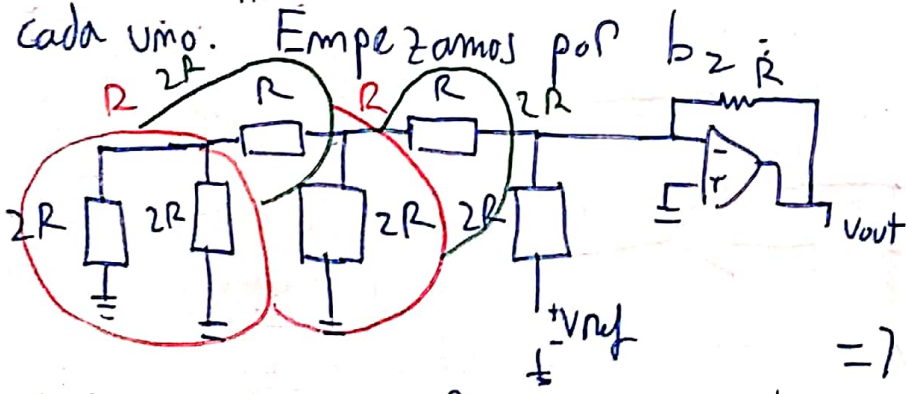 cada uno. Empezamos por b2
2R
R R R R 2R Ṙ
2R 2R 2R 2R
- +
Vout
+
- Vref
=7